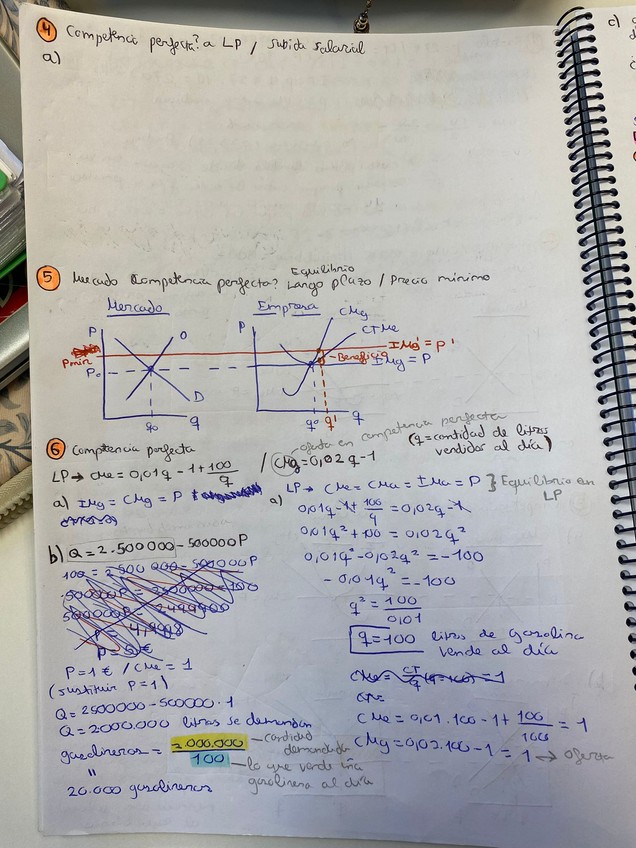 4 Competencia perfecta? a LP / subida salarial
a)
5 Mercado Competencia perfecta? Equilibrio Largo plazo / Precio mínimo
Mercado
Empresa
P
O
Pmin
P0
D
q0
q
P
CMg
CTMe
IMg' = P'
Beneficio
IMg = P
q0 q'
q
6 Competencia perfecta
LP → CMe = 0,01q - 1 + 100/q / CMg = 0,02q - 1
oferta en competencia perfecta
(q = cantidad de litros vendidos al día)
a) IMg = CMg = P
b) Q = 2.500000 - 500000P
100 = 2500000 - 500000P
500000P = 2500000 - 100
500000P = 2499900
P = 4,9998
P = 5€
P = 1€ / CMe = 1
(sustituir P = 1)
Q = 2500000 - 500000 · 1
Q = 2000.000 litros se demandan
gasolineras = 2.000.000/100
cantidad demandada
lo que vende una gasolinera al día
"
20.000 gasolineras
a) LP → CMe = CMa = IMa = P } Equilibrio en LP
0,01q - 1 + 100/q = 0,02q - 1
0,01q² + 100 = 0,02q²
0,01q² - 0,02q² = -100
- 0,01q² = -100
q² = 100/0,01
q = 100 litros de gasolina vende al día
CMe = CT/q (q=100) = 1
CMe = 0,01 · 100 - 1 + 100/100 = 1
CMg = 0,02 · 100 - 1 = 1 → oferta
c)